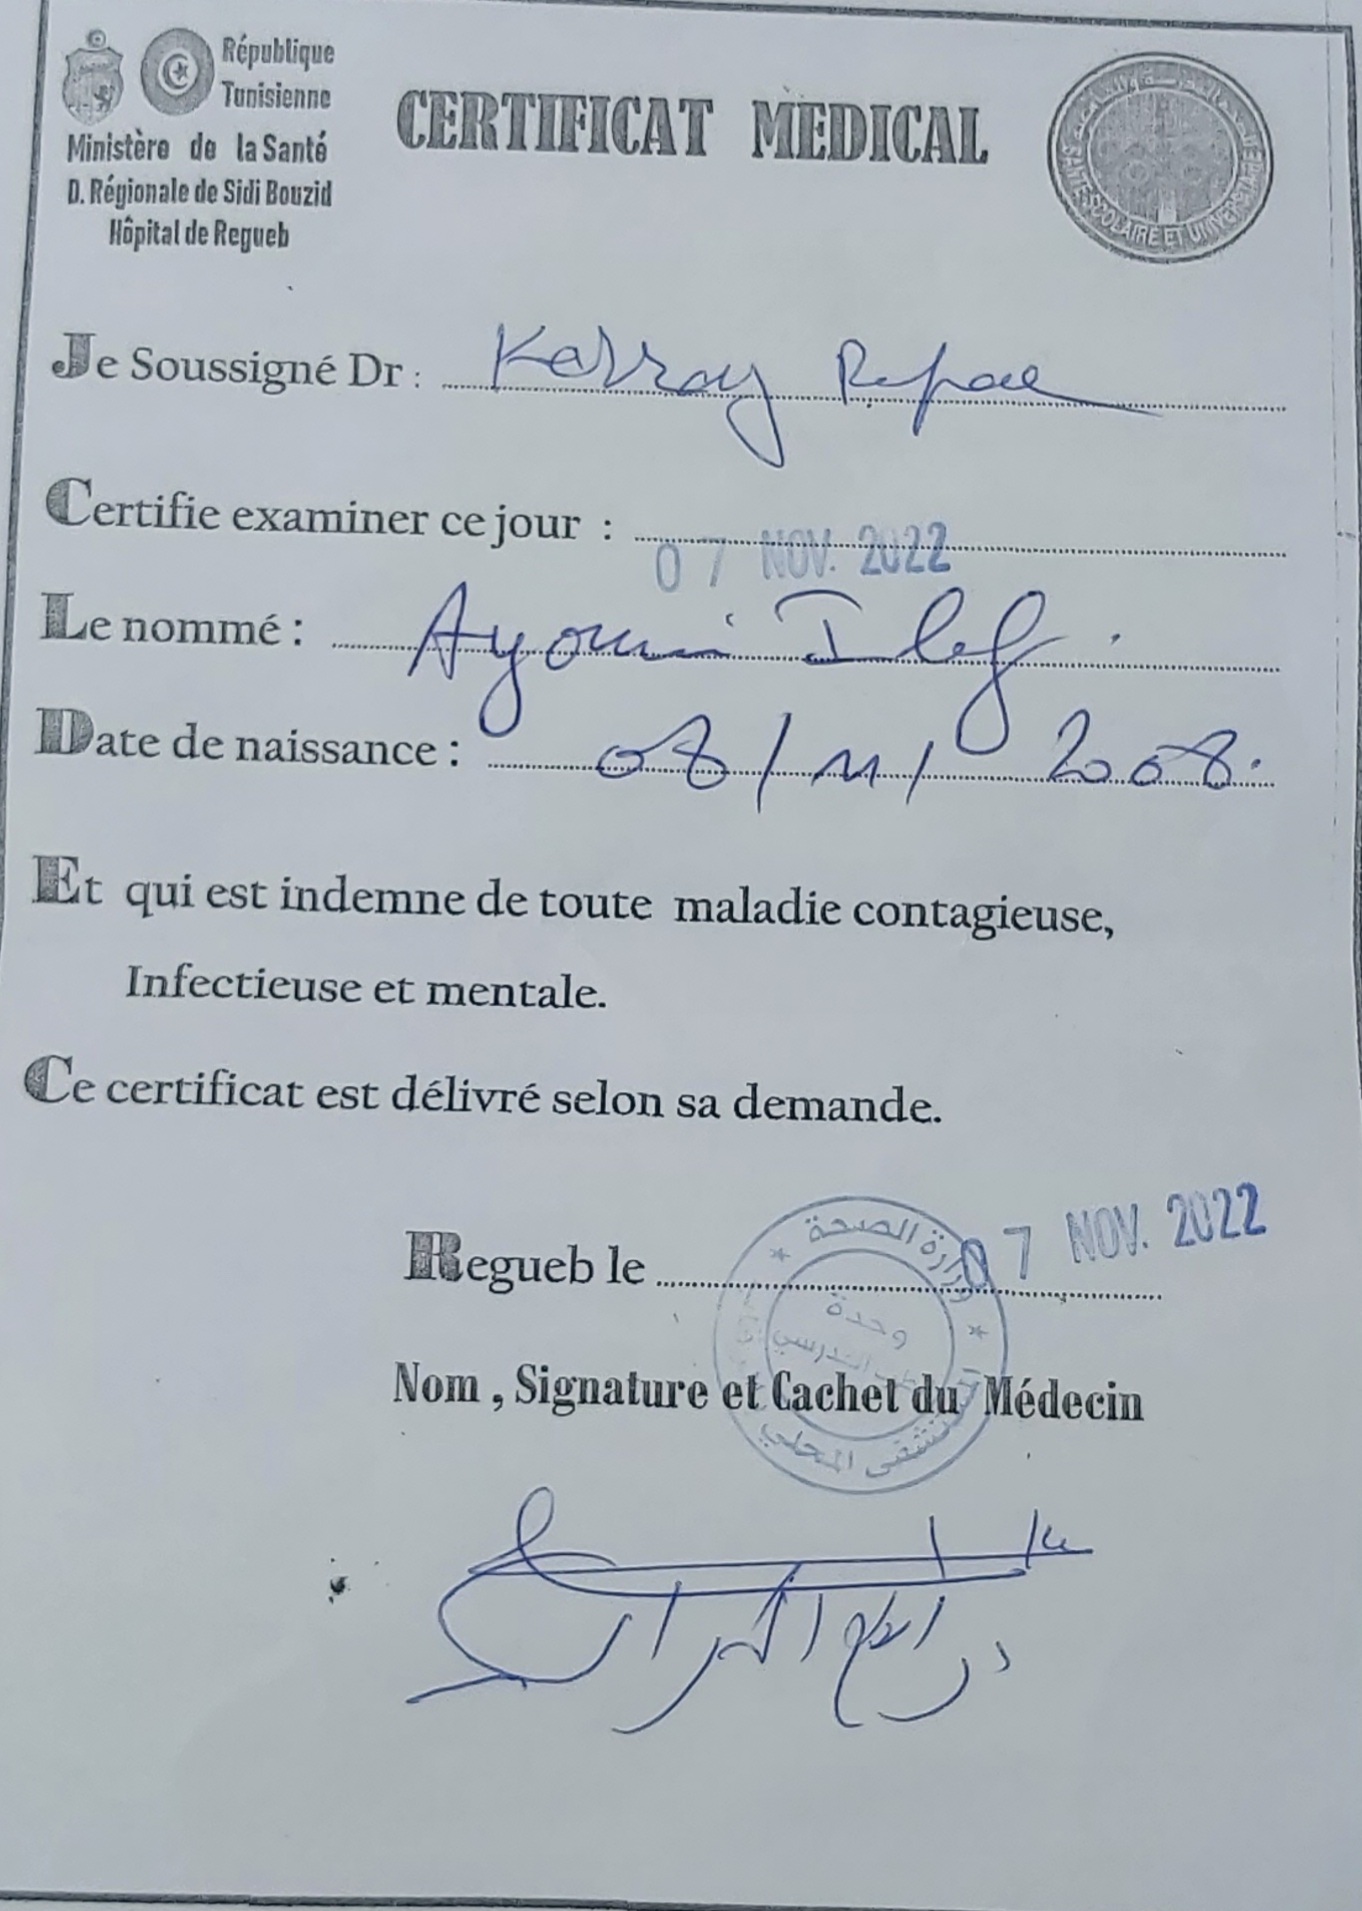 République
Tunisienne
Ministère de la Santé
D. Régionale de Sidi Bouzid
Hôpital de Regueb
CERTIFICAT MEDICAL
SANTE SCOLAIRE ET UNIVERSITAIRE
Je Soussigné Dr : Karray
Certifie examiner ce jour :
07 NOV. 2022
Le nommé : Ayouni Ilef
Date de naissance : 08/11/2008.
Et qui est indemne de toute maladie contagieuse,
Infectieuse et mentale.
Ce certificat est délivré selon sa demande.
Regueb le 07 NOV. 2022
وزارة الصحة
وحدة
المحلي
Nom , Signature et Cachet du Médecin